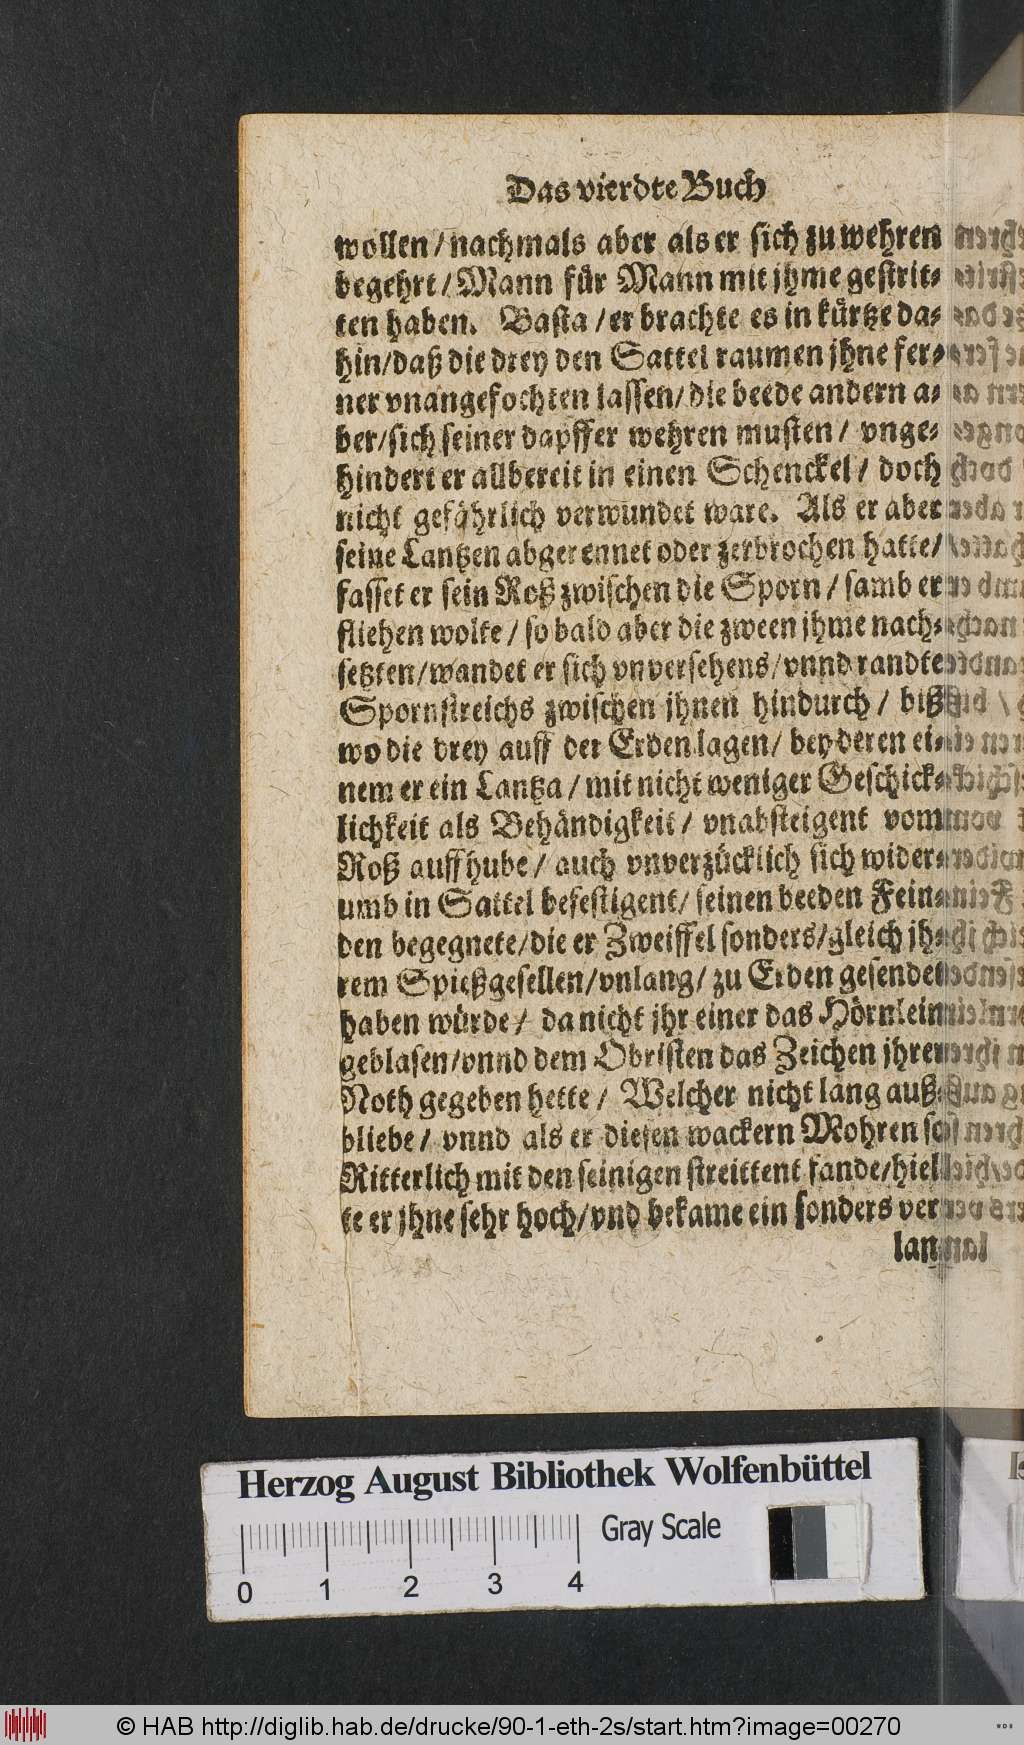 Das vierdte Buch
wollen/nachmals aber als er sich zu wehren
begehrt/Mann für Mann mit jhme gestrit⸗
ten haben. Basta/er brachte es in kürtze da⸗
hin/daß die drey den Sattel raumen jhne fer⸗
ner vnangefochten lassen/die beede andern a⸗
ber/sich seiner dapffer wehren musten/ vnge⸗
hindert er allbereit in einen Schenckel/ doch
nicht gefährlich verwundet ware. Als er aber
seine Lantzen abgerennet oder zerbrochen hatte/
fasset er sein Roß zwischen die Sporn/samb er
fliehen wolte/so bald aber die zween jhme nach⸗
setzten/wandet er sich vnversehens/vnnd randte
Spornstreichs zwischen jhnen hindurch/ biß
wo die drey auff der Erden lagen/ bey deren ei⸗
nem er ein Lantza/mit nicht weniger Geschick⸗
lichkeit als Behändigkeit/ vnabsteigent vom
Roß auffhube/ auch vnverzücklich sich wider⸗
umb in Sattel befestigent/ seinen beeden Fein⸗
den begegnete/die er Zweiffel sonders/gleich jh⸗
rem Spießgesellen/vnlang/ zu Erden gesendet
haben würde/ da nicht jhr einer das Hörnlein
geblasen/vnnd dem Obristen das Zeichen jhrer
Noth gegeben hette/ Welcher nicht lang auß⸗
bliebe/ vnnd als er diesen wackern Mohren so
Ritterlich mit den seinigen streittent fande/hiel⸗
te er jhne sehr hoch/vnd bekame ein sonders ver⸗
lan⸗
Herzog August Bibliothek Wolfenbüttel
Gray Scale
0 1 2 3 4
© HAB http://diglib.hab.de/drucke/90-1-eth-2s/start.htm?image=00270